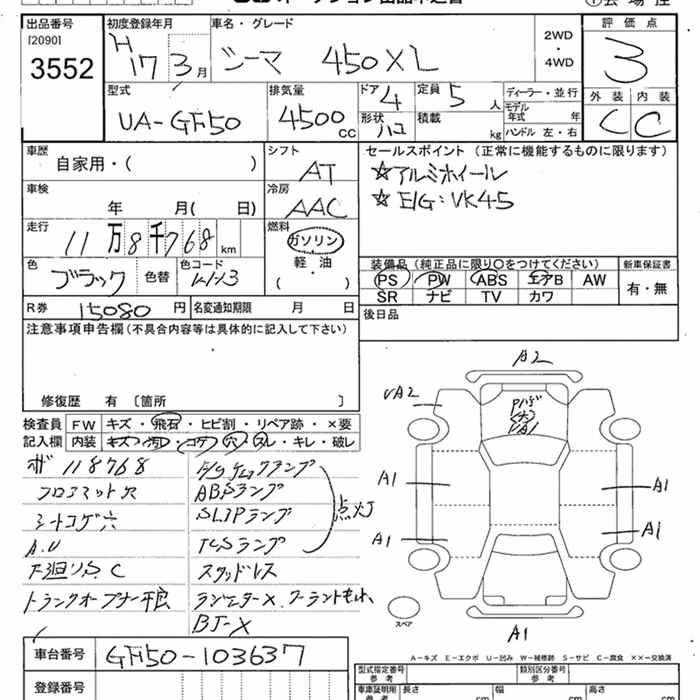 出品番号 初度登録年月 車名・グレード 評価点
[2090]
3552 H17 3月 シーマ 450XL 2WD・4WD 3
型式 排気量 ドア 4 定員 5人 ディーラー・並行 外装 内装
UA-GF50 4500cc 形状 ハコ 積載 kg モデル年式 年 ハンドル 左・右 C C
車歴 シフト セールスポイント (正常に機能するものに限ります)
自家用・( ) AT ☆アルミホイール
車検 冷房 ☆E/G:VK45
年 月( 日) AAC
走行 燃料
11万8千768km ガソリン
軽・油
( ・ )
色 色コード 装備品 (純正品に限り○をつけてください) 新車保証書
ブラック 色替 PS PW ABS エアB AW 有・無
SR ナビ TV カワ
R券 15080円 名変通知期限 月 日 後日品
注意事項申告欄 (不具合内容等は具体的に記入して下さい)
修復歴 有 〔箇所 〕
A2
UA2
A1 A1
A1 A1
スペア
A1
検査員 FW キズ・飛石・ヒビ割・リペア跡・×要
記入欄 内装 キズ・汚レ・コゲ・穴・スレ・キレ・破レ
118768
フロアマット穴 ABSランプ
シートコゲ穴 SLIPランプ 点灯
A.U TCSランプ
下廻りS.C スタッドレス
トランクオープナー不良
BJ-X
車台番号 GF50-103637
登録番号
A-キズ E-エクボ U-凹み W-補修跡 S-サビ C-腐食 ××-交換済
型式指定番号 参考 類別区分番号 参考
車庫証明用 参考 長さ cm 幅 cm 高さ cm